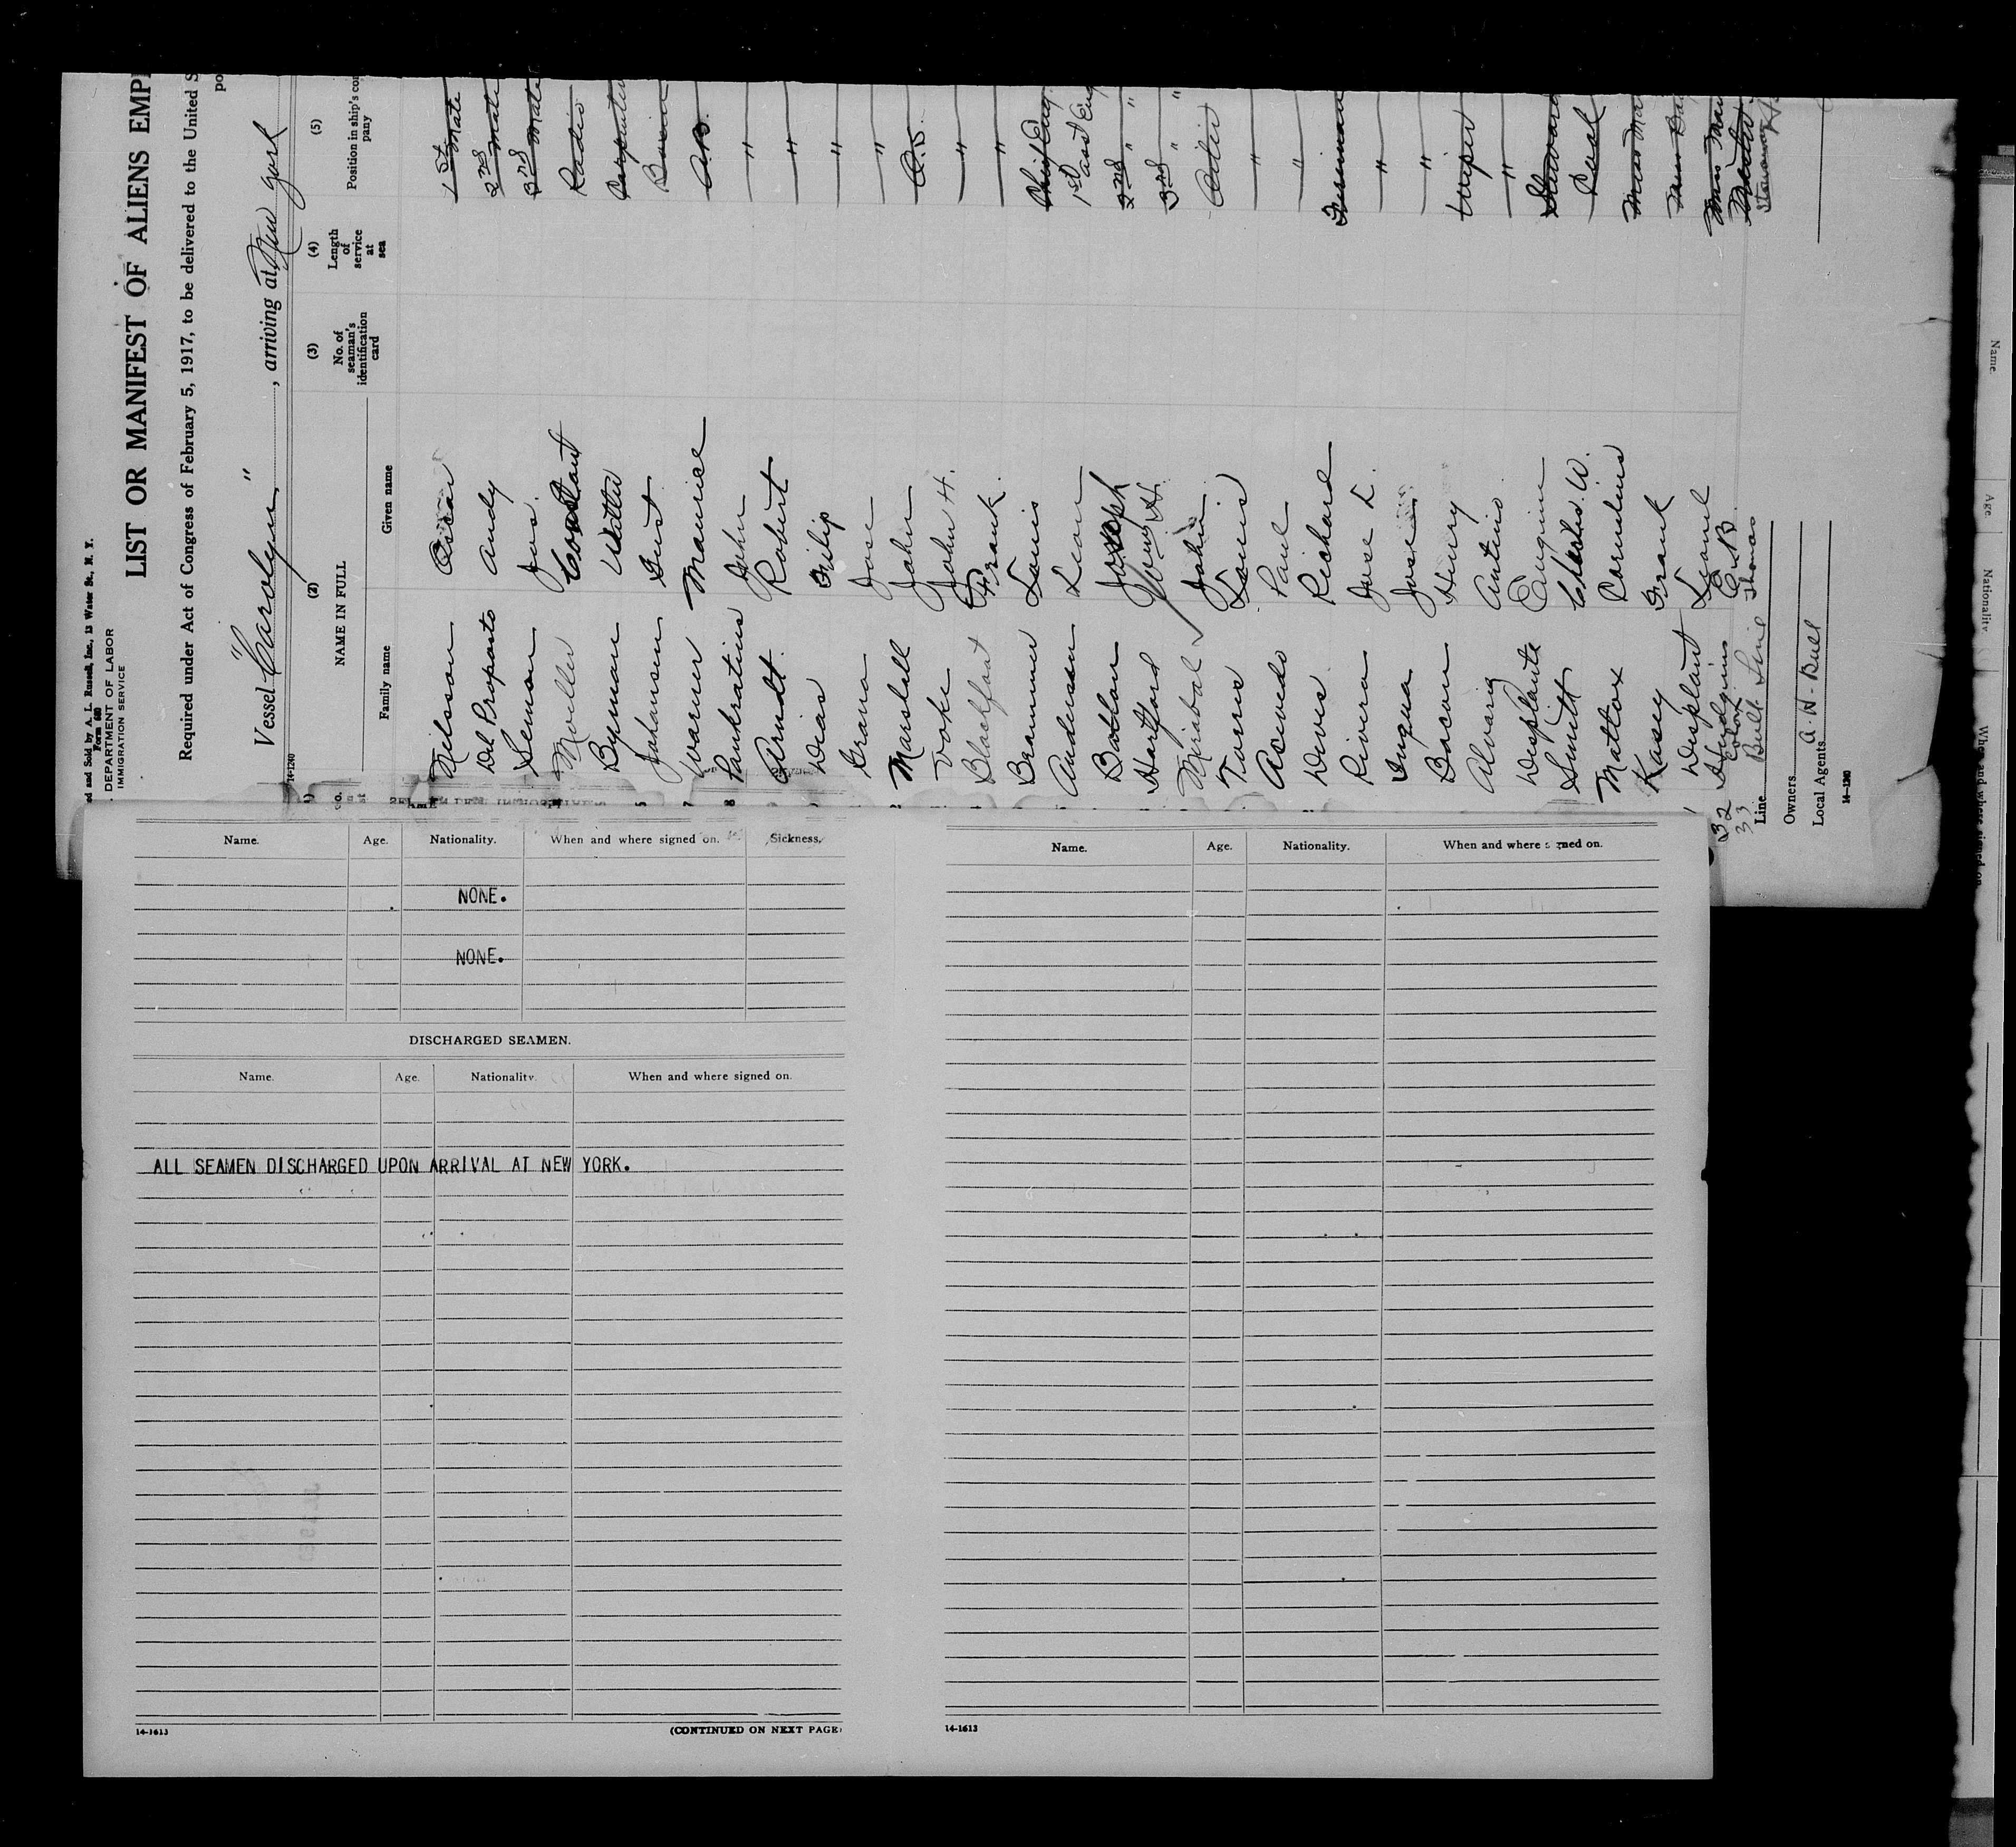 ed and Sold by A. L. Russell, Inc., 13 Water St., N. Y.
Form 680
DEPARTMENT OF LABOR
IMMIGRATION SERVICE
LIST OR MANIFEST OF ALIENS EMP
Required under Act of Congress of February 5, 1917, to be delivered to the United S
po
Vessel "Carolyn", arriving at New York
14-1240
(2) (3) (4) (5)
NAME IN FULL No. of seaman's identification card Length of service at sea Position in ship's com pany
Family name Given name
Nilsson Oscar 1st Mate
Del Proposto Andy 2nd Mate
Semon Jos. 3rd Mate
Moeller Constant Radio
Byman Walter Carpenter
Johansen Gust
Warner Maurise A.B.
Pankratius John "
Arndt Robert "
Dias Filip "
Grana Jose "
Marshall John O.S.
Voke John H. "
Blackfoat Frank "
Beammer Louis Chief Eng.
Anderson Leon 1st Asst Eng
Bablan Joseph 2nd " "
Hartford George H. 3rd " "
Mirabal John Oiler
Torres Louis "
Acevedo Paul "
Dives Richard Fireman
Rivera Jose L. "
Jose "
Bacon Henry Wiper
Alvarig Antino "
Desplante Eugine Steward
Smith Charles W. Cook
Mattox Cornelius Mess Man
Kasey Frank
Desplant Leonel Mess Man
32 Hudgins E. B.
33 Thomas
Line Bull Line
Owners
Local Agents A. H. Bull
14-1240
Name. Age. Nationality. When and where signed on. Sickness.
NONE.
NONE.
DISCHARGED SEAMEN.
Name. Age. Nationality. When and where signed on.
ALL SEAMEN DISCHARGED UPON ARRIVAL AT NEW YORK.
14-1613
(CONTINUED ON NEXT PAGE)
Name. Age. Nationality. When and where signed on.
14-1613
Name. Age. Nationality When and where signed on